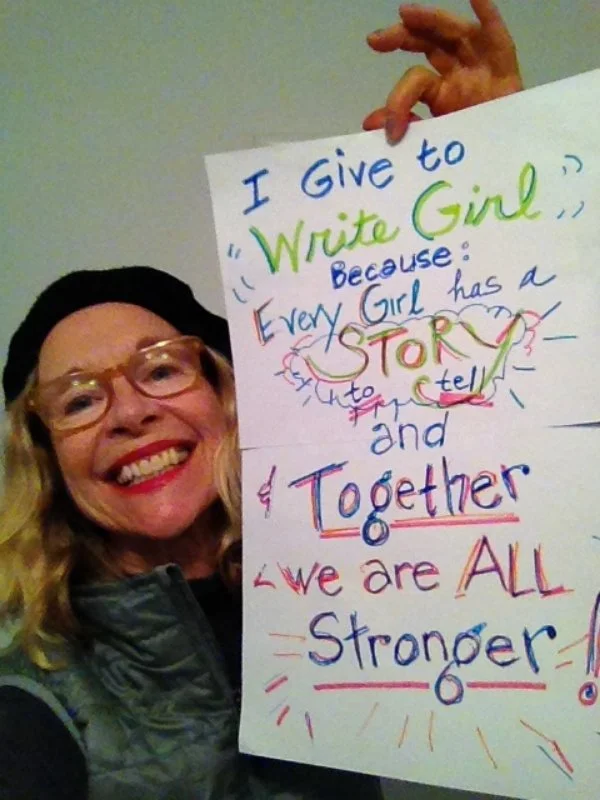 I Give to
"Write Girl"
Because:
Every Girl has a
STORY
to tell
and
& Together
we are ALL
Stronger!